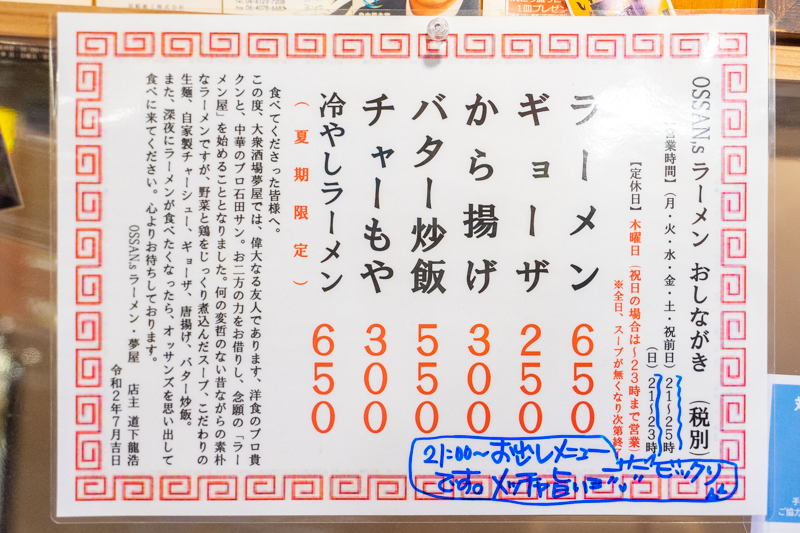 OSSAN,s ラーメン おしながき （税別）
【営業時間】（月・火・水・金・土・祝前日）21〜25時
（日）21〜23時
【定休日】木曜日（祝日の場合は〜23時まで営業）
※全日、スープが無くなり次第終了
ラーメン 650
ギョーザ 250
から揚げ 300
バター炒飯 550
チャーもや 300
冷やしラーメン 650
（夏期限定）
食べてくださった皆様へ。
この度、大衆酒場夢屋では、偉大なる友人であります、洋食のプロ貴
クンと、中華のプロ石田サン。お二方の力をお借りし、念願の「ラー
メン屋」を始めることとなりました。何の変哲のない昔ながらの素朴
なラーメンですが、野菜と鶏をじっくり煮込んだスープ、こだわりの
生麺、自家製チャーシュー、ギョーザ、唐揚げ、バター炒飯。
また、深夜にラーメンが食べたくなったら、オッサンズを思い出して
食べに来てください。心よりお待ちしております。
OSSAN,s ラーメン・夢屋 店主 道下龍浩
令和2年7月吉日
21:00〜お出しメニュー
です。メッチャ旨い
ビックリ